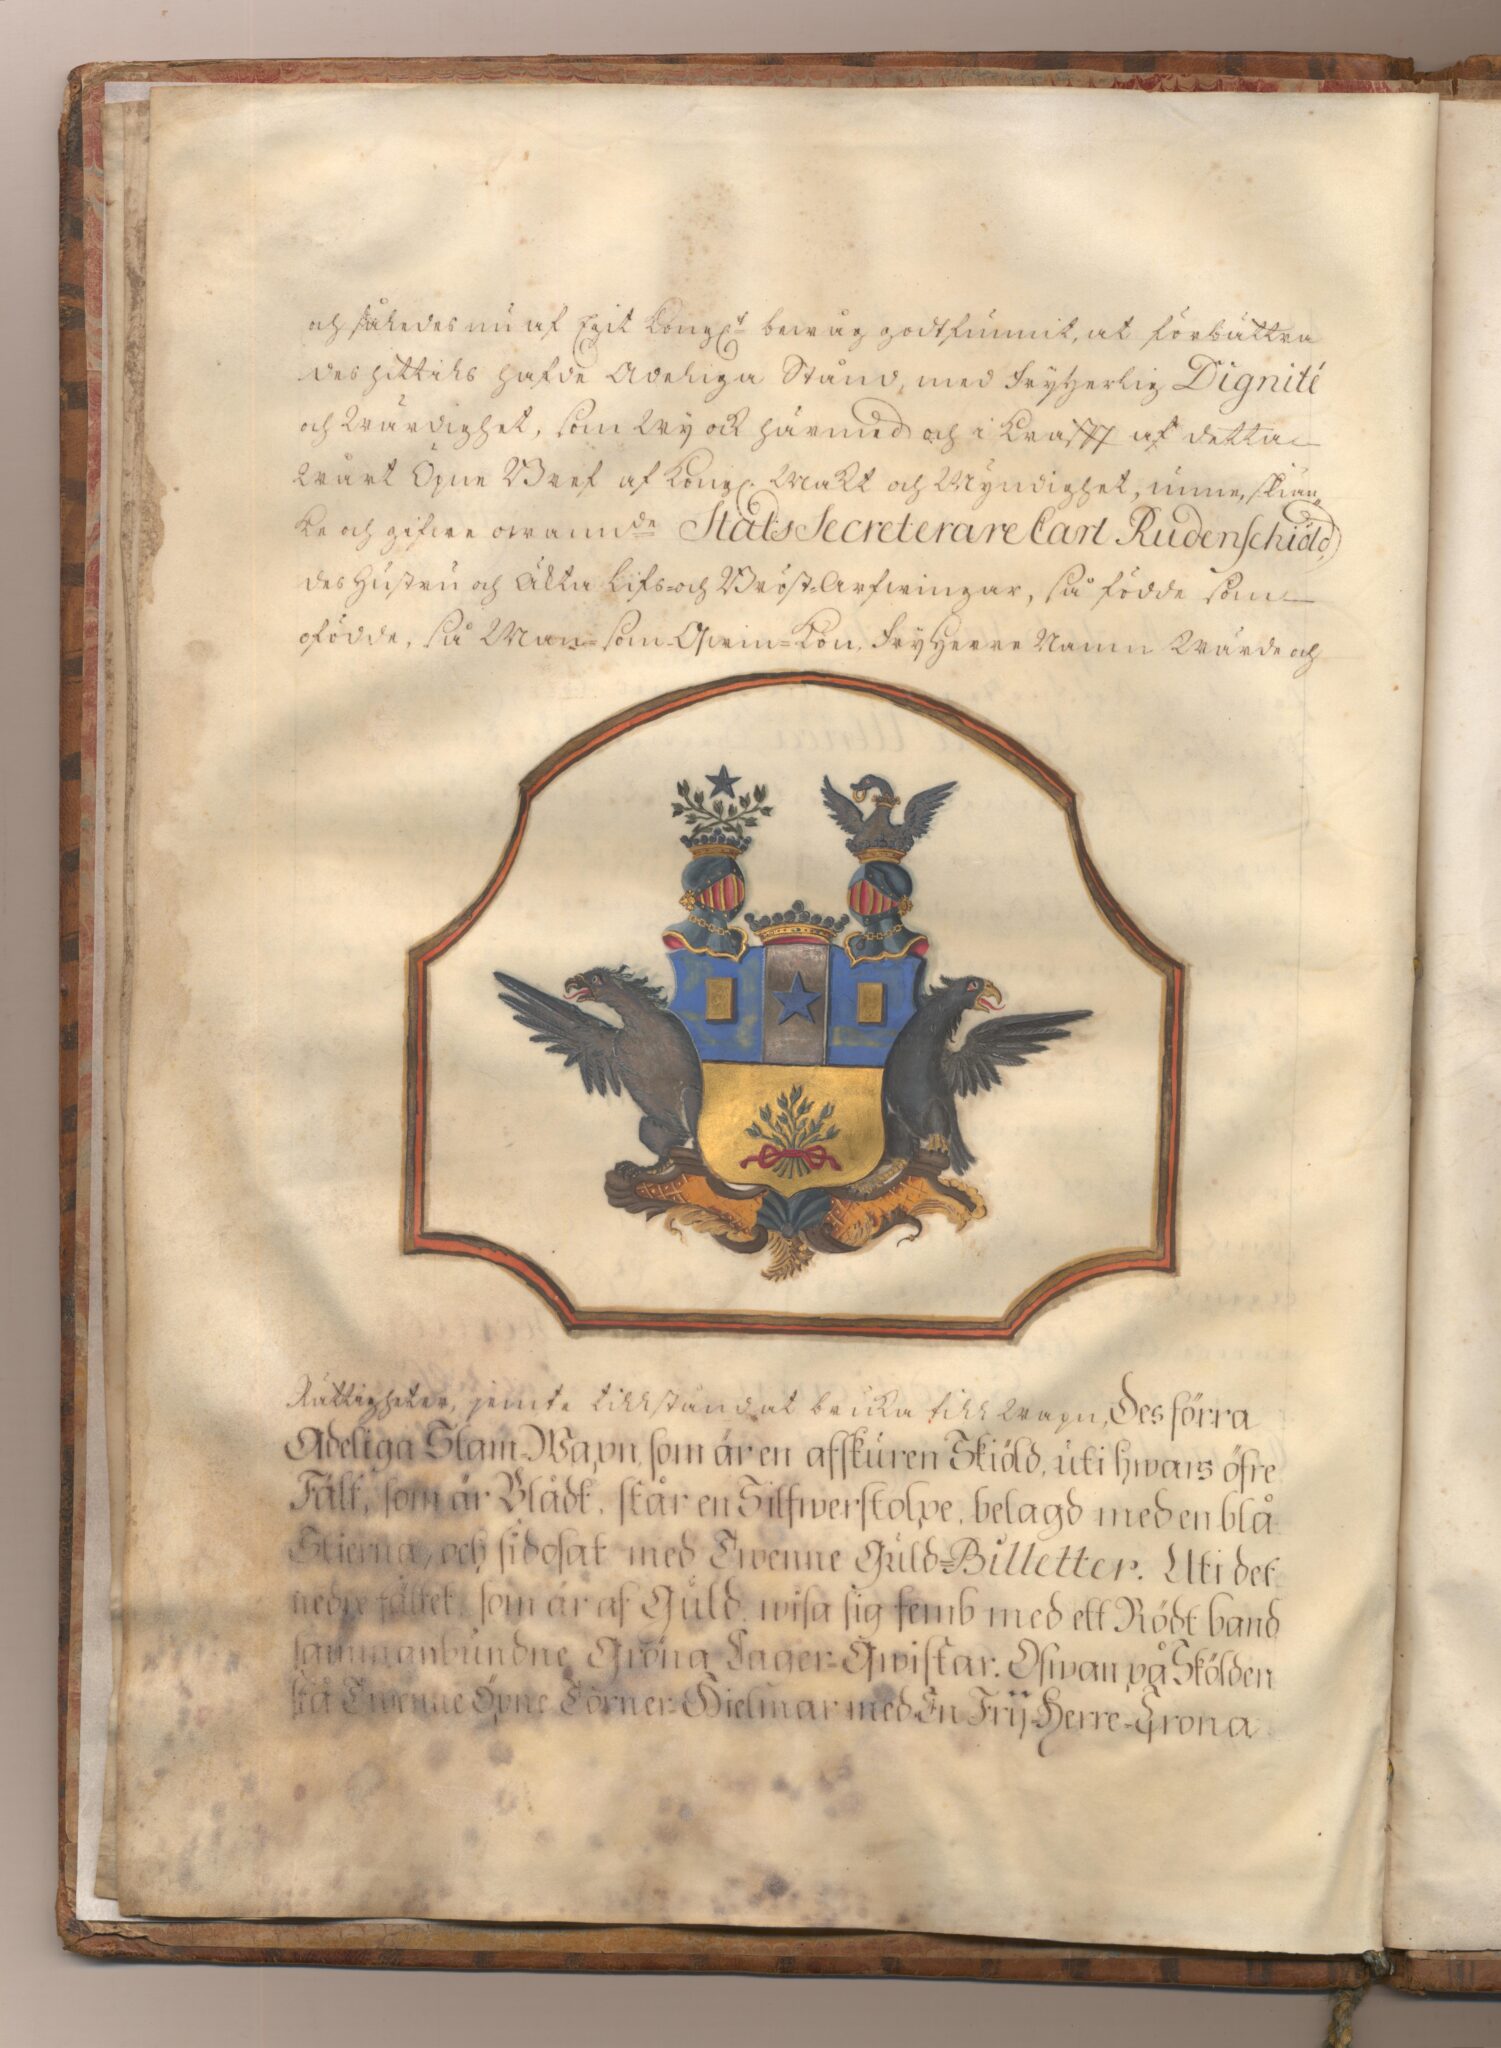 och således nu af Egit Kongl:t bewåg godtfunnit, at förbättra
des hittils hafde Adeliga Stånd, med FryHerlig Dignité
och Wärdighet, som Wy ock härmed och i Krafft af detta
Wårt Öpne Bref af Kongl. Makt och Myndighet, unne, skiän„
ke och gifwe owannde Stats Secreterare Carl Rudenschiöld,
des Hustru och Äkta Lifs=och Bröst=Arfwingar, så födde som
ofödde, så Man= som Qwin=Kön, FryHerre Namn Wärde och
Rättigheter, jemte tillstånd at bruka till Wapn, Des förra
Adeliga Stam-Wapn, som är en afskuren Skiöld, uti hwars öfre
Fält, som är Blådt, står en Silfwerstolpe, belagd med en blå
Stierna, och sidosat med Twenne Guld=Billetter. Uti det
nedre fältet, som är af Guld, wisa sig femb med ett Rödt band
sammanbundne Gröna Lager=Qwistar. Ofwan på Skölden
stå Twenne Öpne Törner=Hielmar med En Frij-Herre-Crona